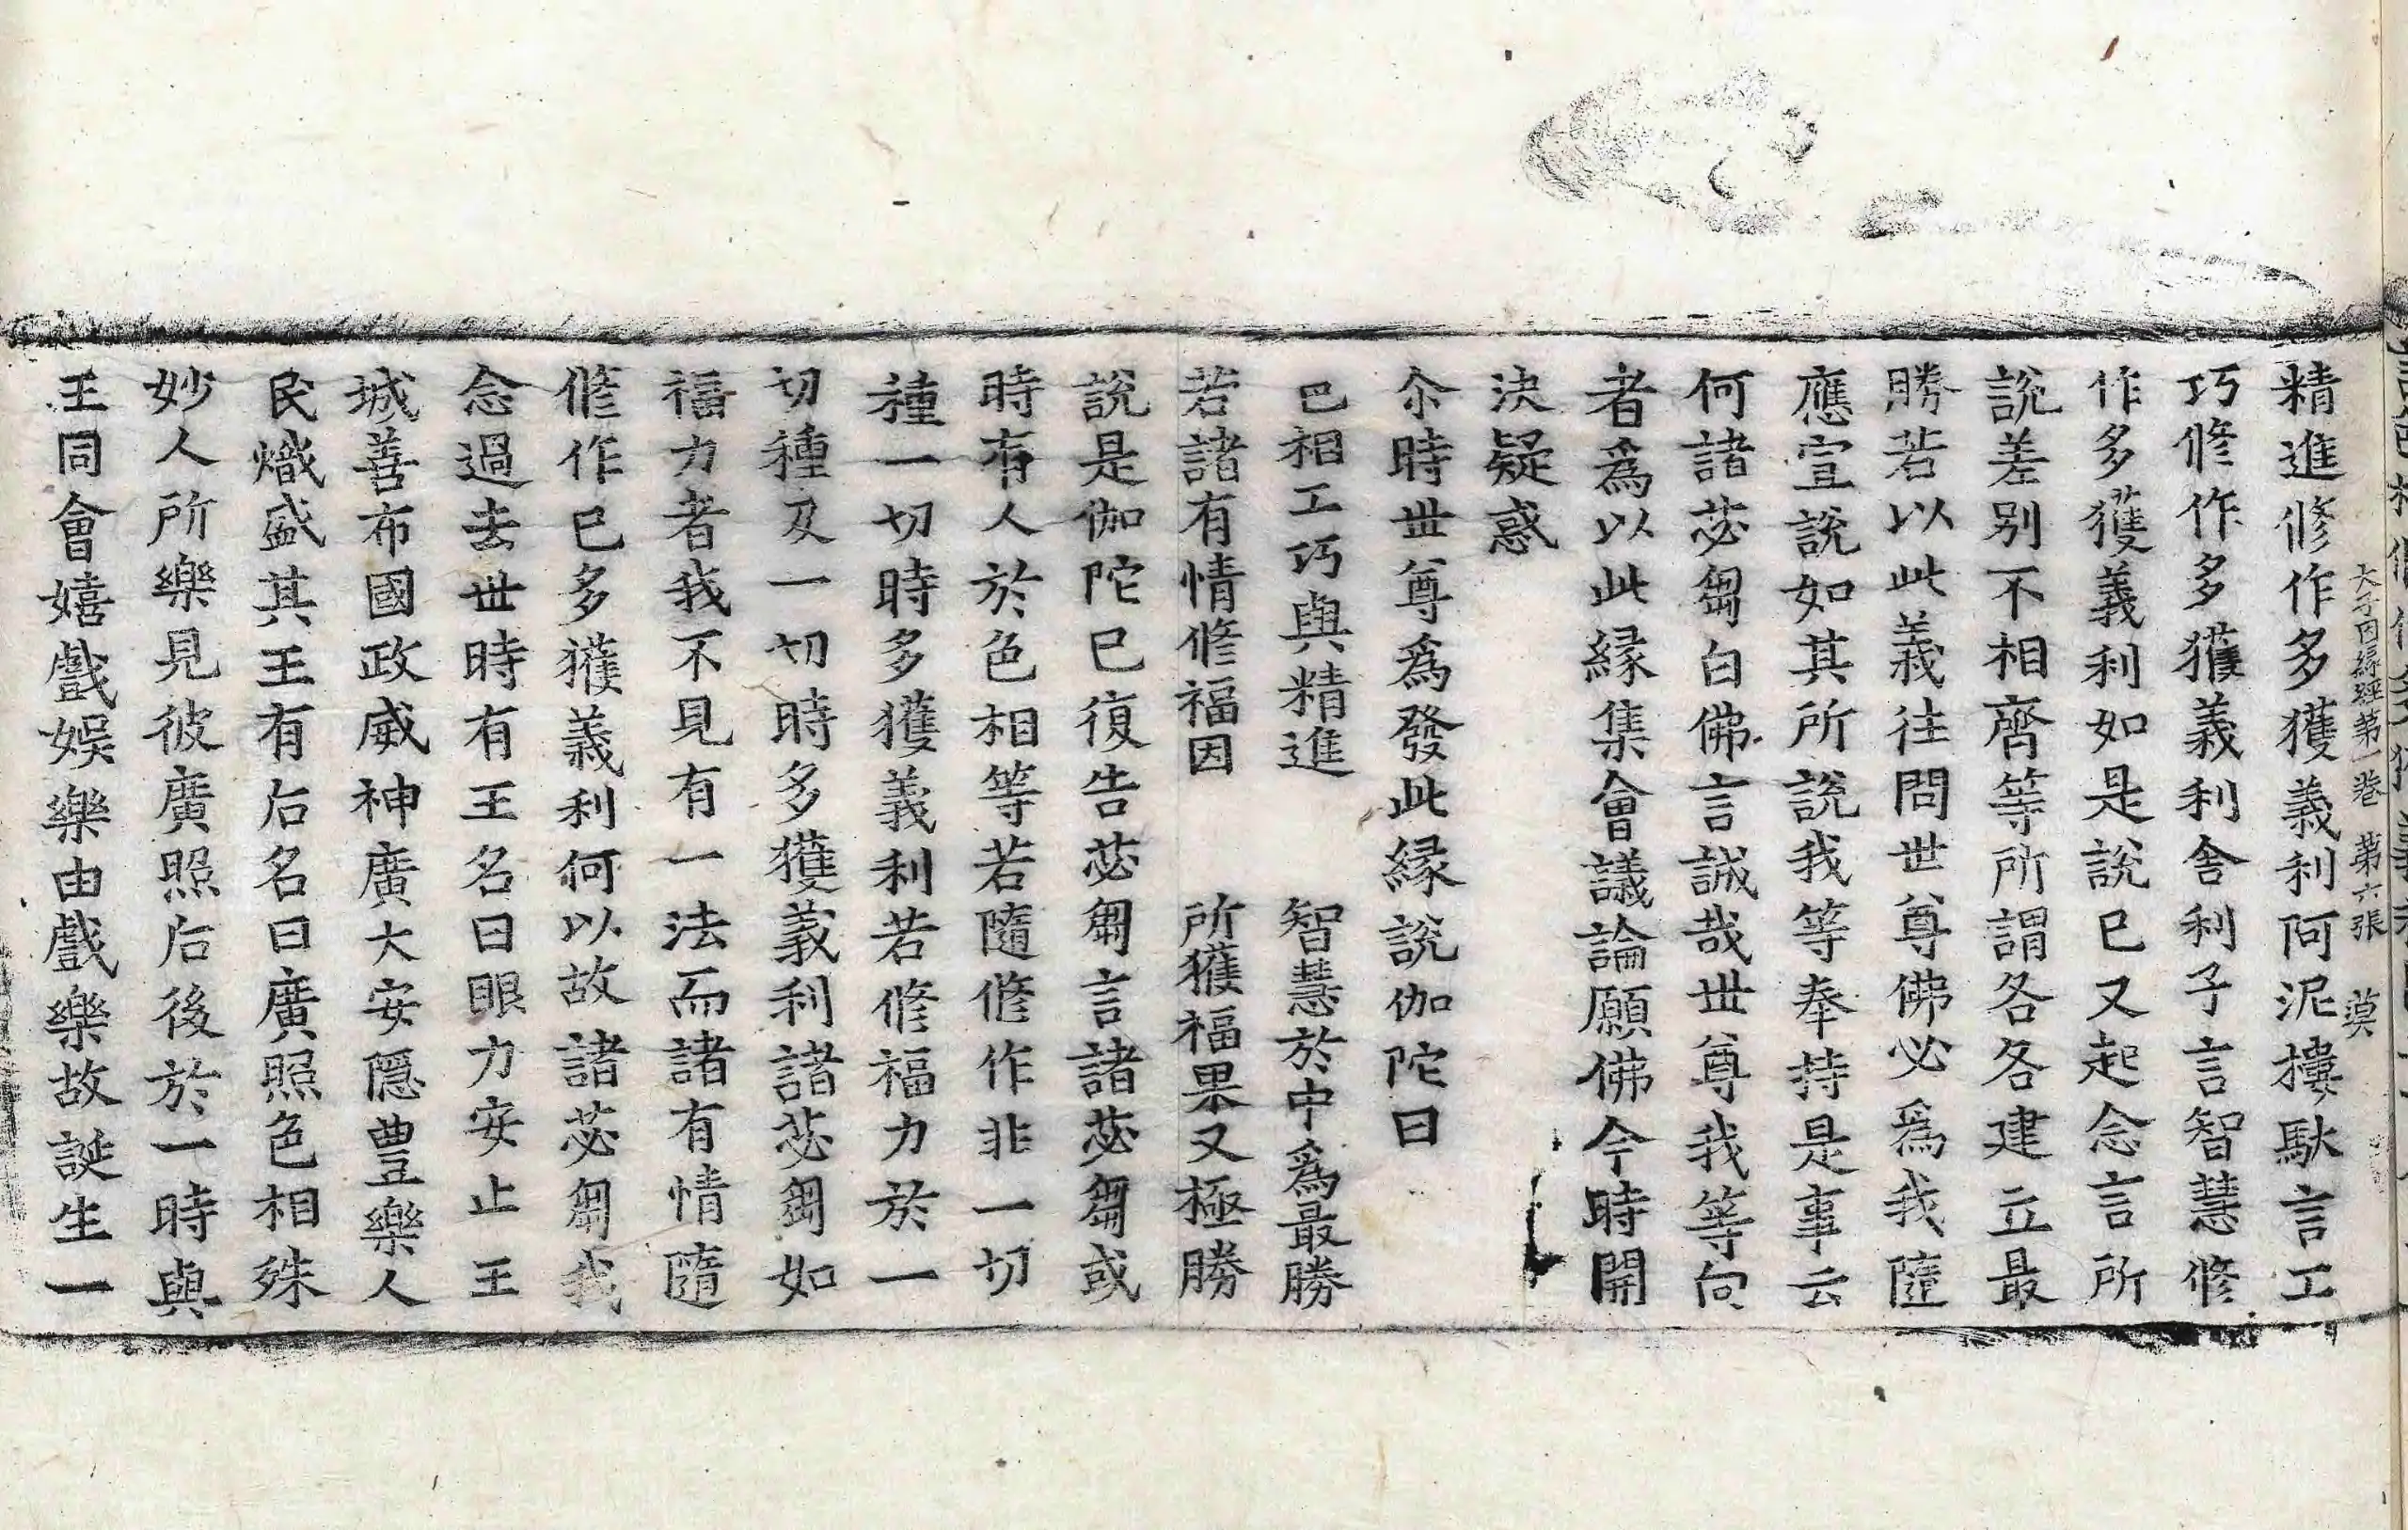 大子因縁經第一卷　第六張　莫
精進修作多獲義利阿泥摟馱言工
巧修作多獲義利舍利子言智慧修
作多獲義利如是說已又起念言所
說差別不相齊等所謂各各建立最
勝若以此義往問世尊佛必爲我隨
應宣說如其所說我等奉持是事云
何諸苾芻白佛言誠哉世尊我等向
者爲以此緣集會議論願佛今時開
決疑惑
尒時世尊爲發此緣說伽陀曰
色相工巧與精進　智慧於中爲最勝
若諸有情修福因　所獲福果又極勝
說是伽陀已復告苾芻言諸苾芻或
時有人於色相等若隨修作非一切
種一切時多獲義利若修福力於一
切種及一切時多獲義利諸苾芻如
福力者我不見有一法而諸有情隨
修作已多獲義利何以故諸苾芻我
念過去世時有王名曰眼力安止王
城善布國政威神廣大安隱豊樂人
民熾盛其王有后名曰廣照色相殊
妙人所樂見彼廣照后後於一時與
王同會嬉戲娛樂由戲樂故誕生一